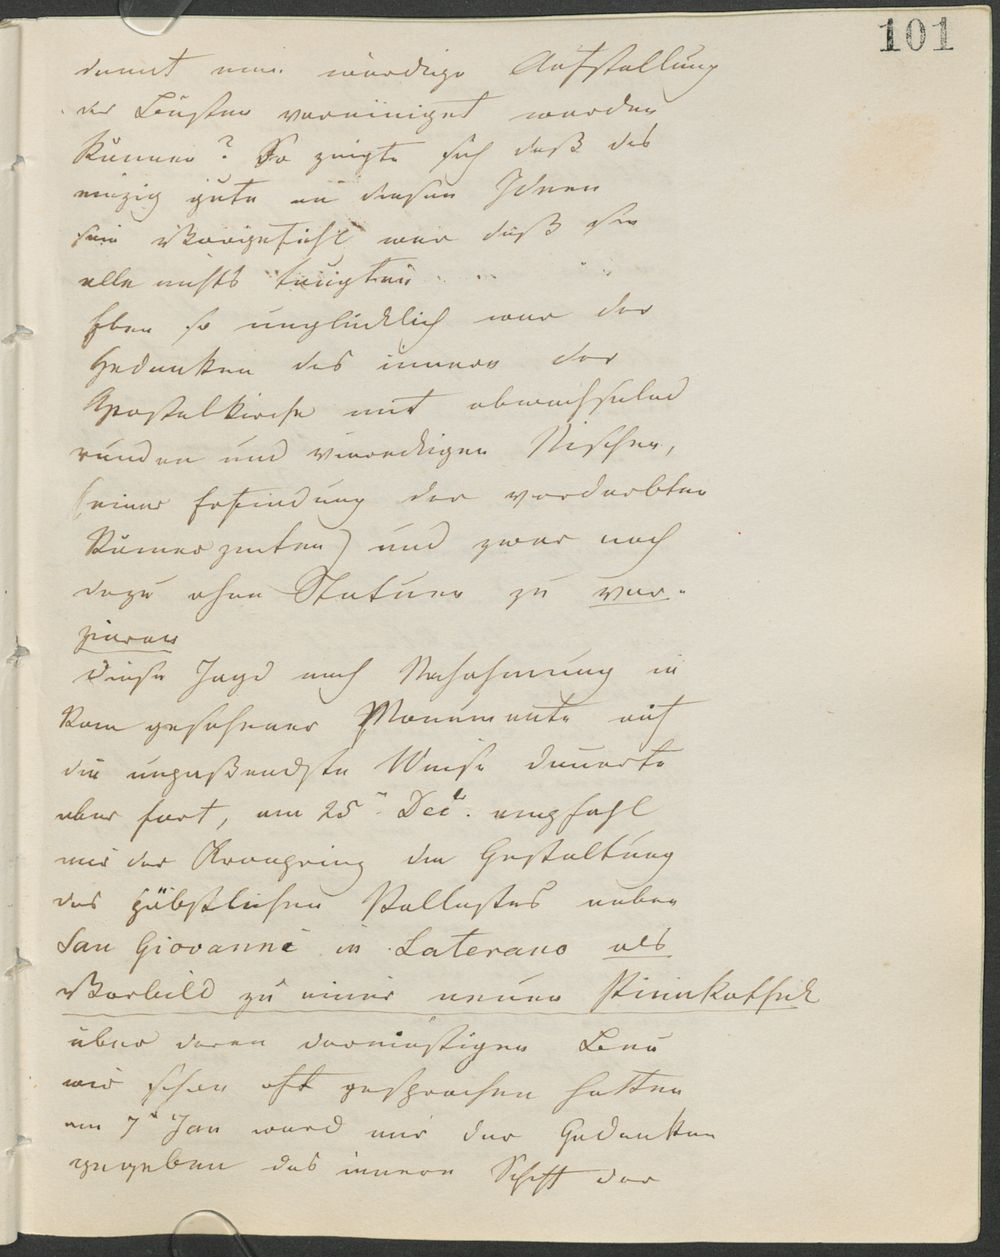 101
damit eine würdige Aufstellung
der Büsten vereiniget werden
können? So zeigte sich daß das
einzig gute an diesen Ideen
sein Vorgefühl war daß sie
alle nichts taugten
Eben so unglücklich war der
Gedanken das innere der
Apostelkirche mit abwechselnd
runden und viereckigen Nischen,
(einer Erfindung der verderbten
Römerzeiten) und zwar noch
dazu ohne Statuen zu ver-
zieren
Diese Jagd nach Nachahmung in
Rom gesehener Monumente auf
die unpaßendste Weise dauerte
aber fort, am 25n Dec. empfahl
mir der Kronprinz die Gestaltung
des päbstlichen Pallastes neben
San Giovanni in Laterano als
Vorbild zu einer neuen Pinakothek
über deren dereinstigen Bau
wir schon oft gesprochen hatten
am 7n Jan ward mir der Gedanken
gegeben das innere Schiff der